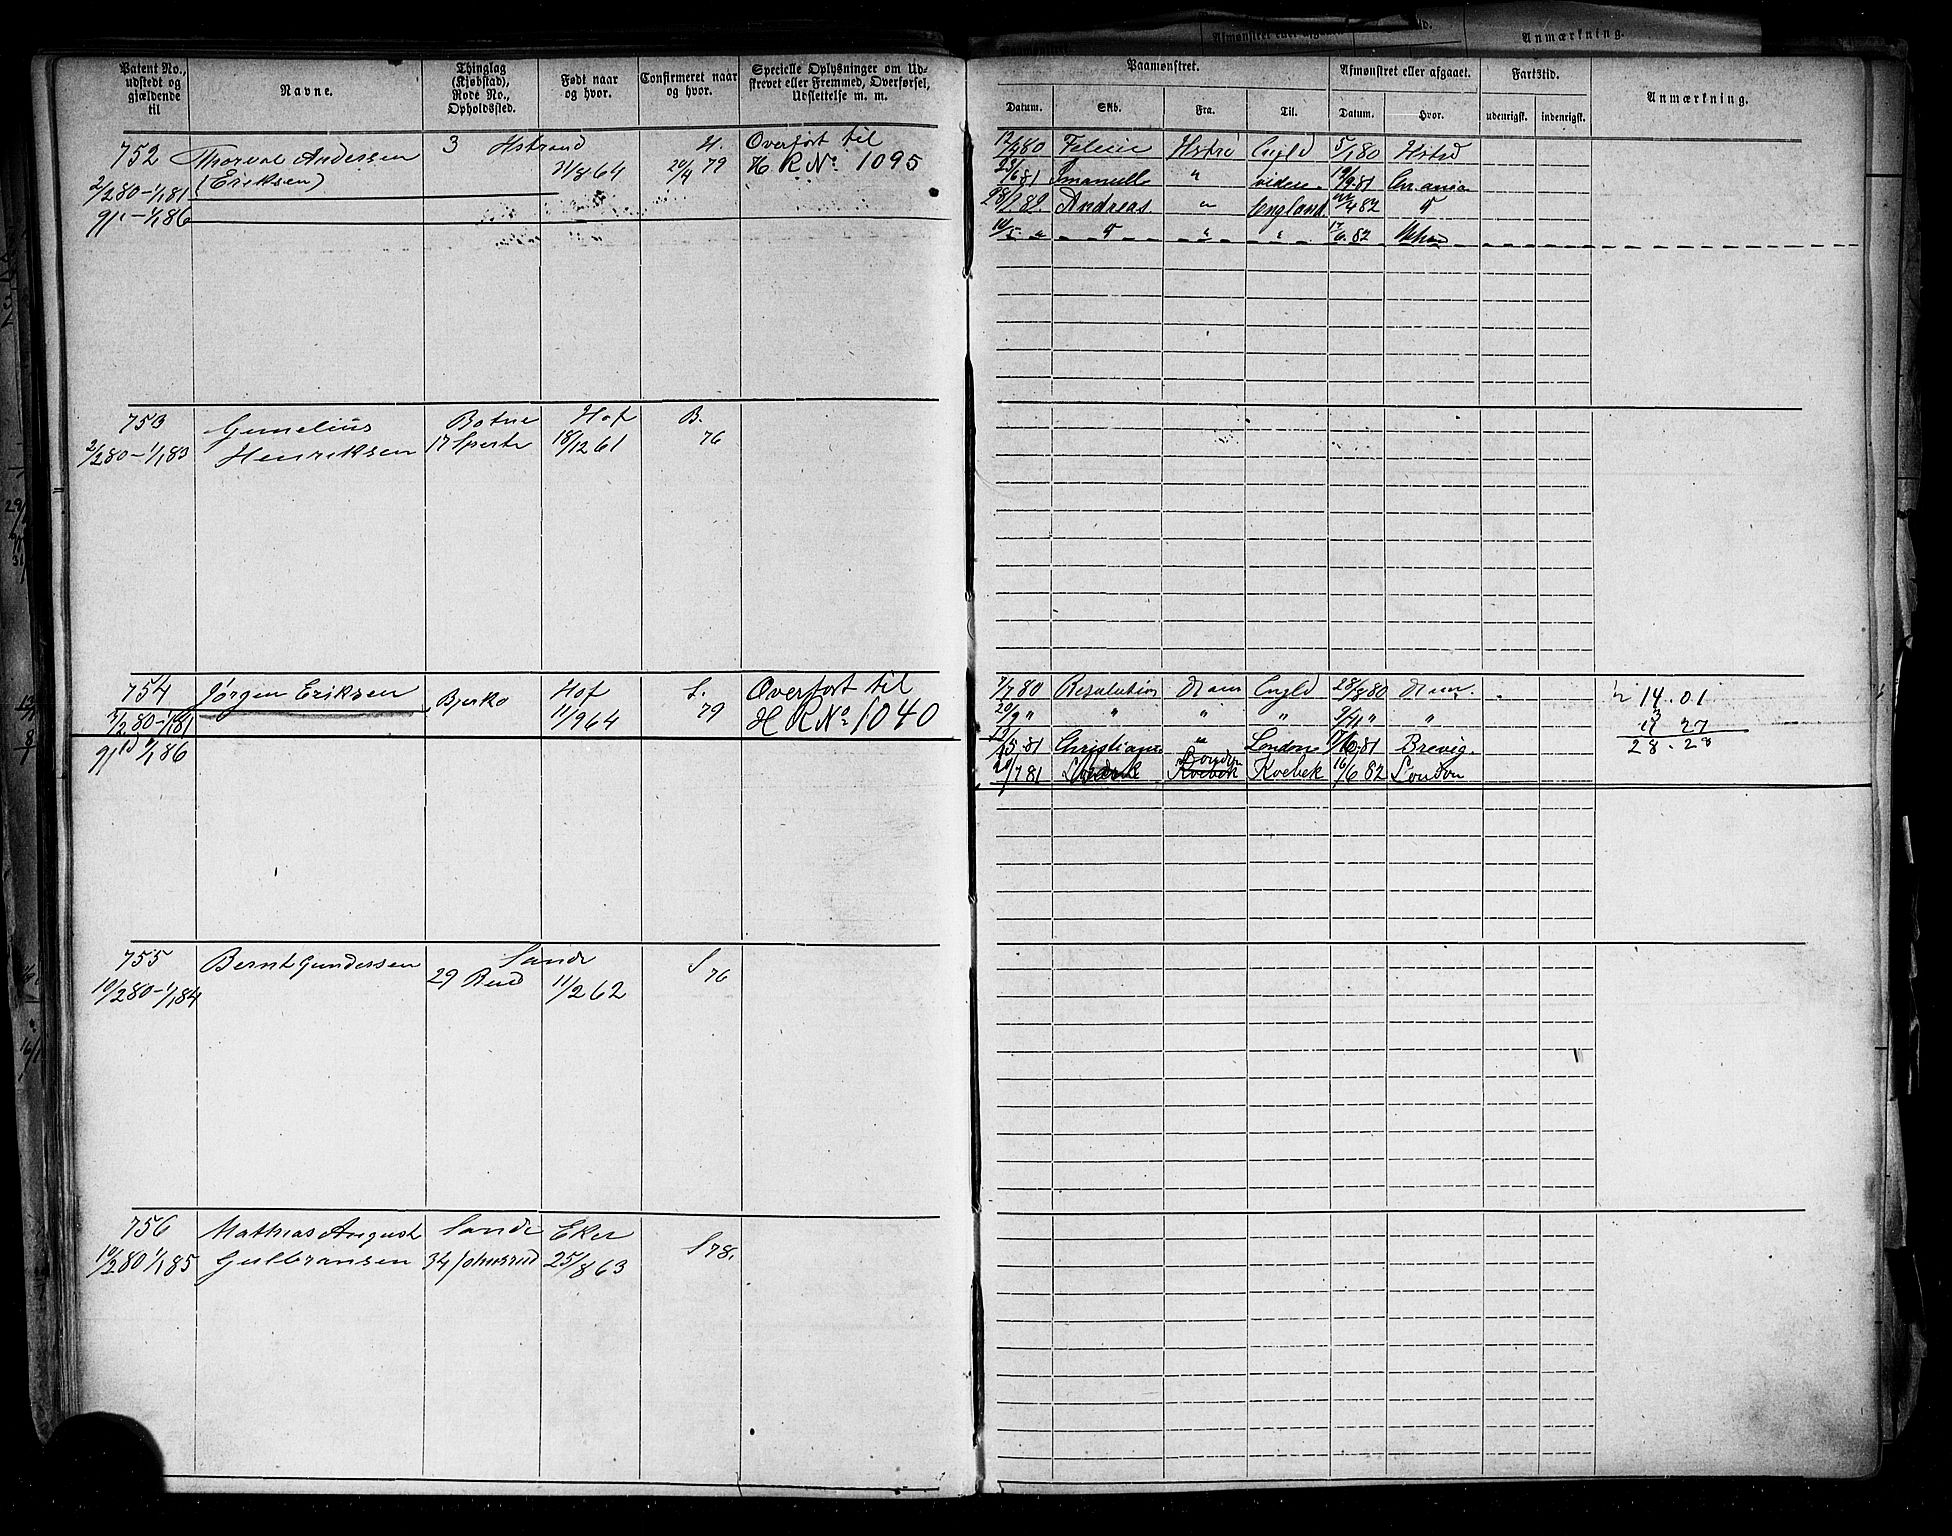 Patent No., udstedt og gjældende til
Navne.
Thinglag (Kjøbstad), Rode No., Opholdssted.
Født naar og hvor.
Confirmeret naar og hvor.
Specielle Oplysninger om Udstrevet eller Fremmed, Overførsel, Udslettelse m. m.
Paamønstret.
Afmønstret eller afgaaet.
Fartstid.
Anmærkning.
Datum.
Skb.
Fra.
Til.
Datum.
Hvor.
udenrigsk.
indenrigsk.
Anmærkning.
752 Thorval Andersen 3 Hstrand H. Overført til
(Eriksen) 31/8 64 20/4 79 H R No. 1095
2/2 80 - 1/1 81
9/1 - 1/1 86
12/2 80 Hstrd Engld 5/1 80 Hstrd
21/6 81 Imanuell " videre 19/9 81
28/2 82 Andreas " England 22/4 82 "
16/5 " " " " 17/6 82
753 Botne Hof B.
2/2 80 - 1/1 83 Henriksen 17 18/12 61 76
754 Jørgen Eriksen Bjerko Hof S. Overført til
4/2 80 - 1/1 81 11/9 64 79 H R No. 1040
9/1 - 1/1 86
7/7 80 Resolution Engld 28/8 80 14.01
20/9 " " " " 9/11 " " 13 27
5 81 Christiane " London 81 Brevig. 28.28
London
20/7 81 Kvebek Kvebek 16/6 82 London
755 Bernt Gundersen Sande S 76
10/2 80 - 1/1 84 29 Rud 11/2 62
756 Mathias August Sande Eker S 78.
10/2 80 1/1 85 Gulbransen 34 Johnsrud 25/8 63